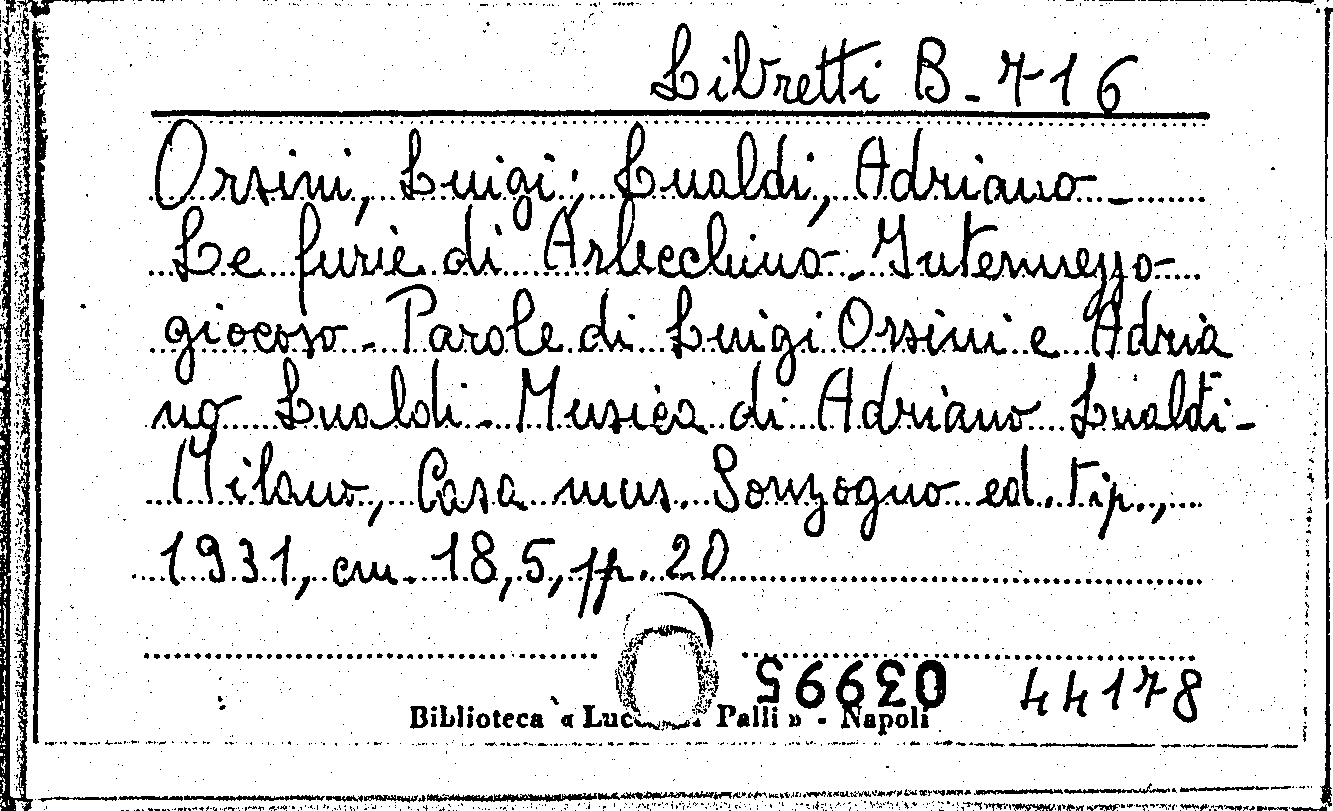 Libretti B-716
Orsini, Luigi; Lualdi, Adriano -
Le furie di Arlecchino - Intermezzo
giocoso - Parole di Luigi Orsini e Adria
no Lualdi - Musica di Adriano Lualdi -
Milano, Casa mus. Sonzogno ed. tip.,
1931, cm. 18,5, pp. 20
03995 44178
Biblioteca « Luc Palli » - Napoli